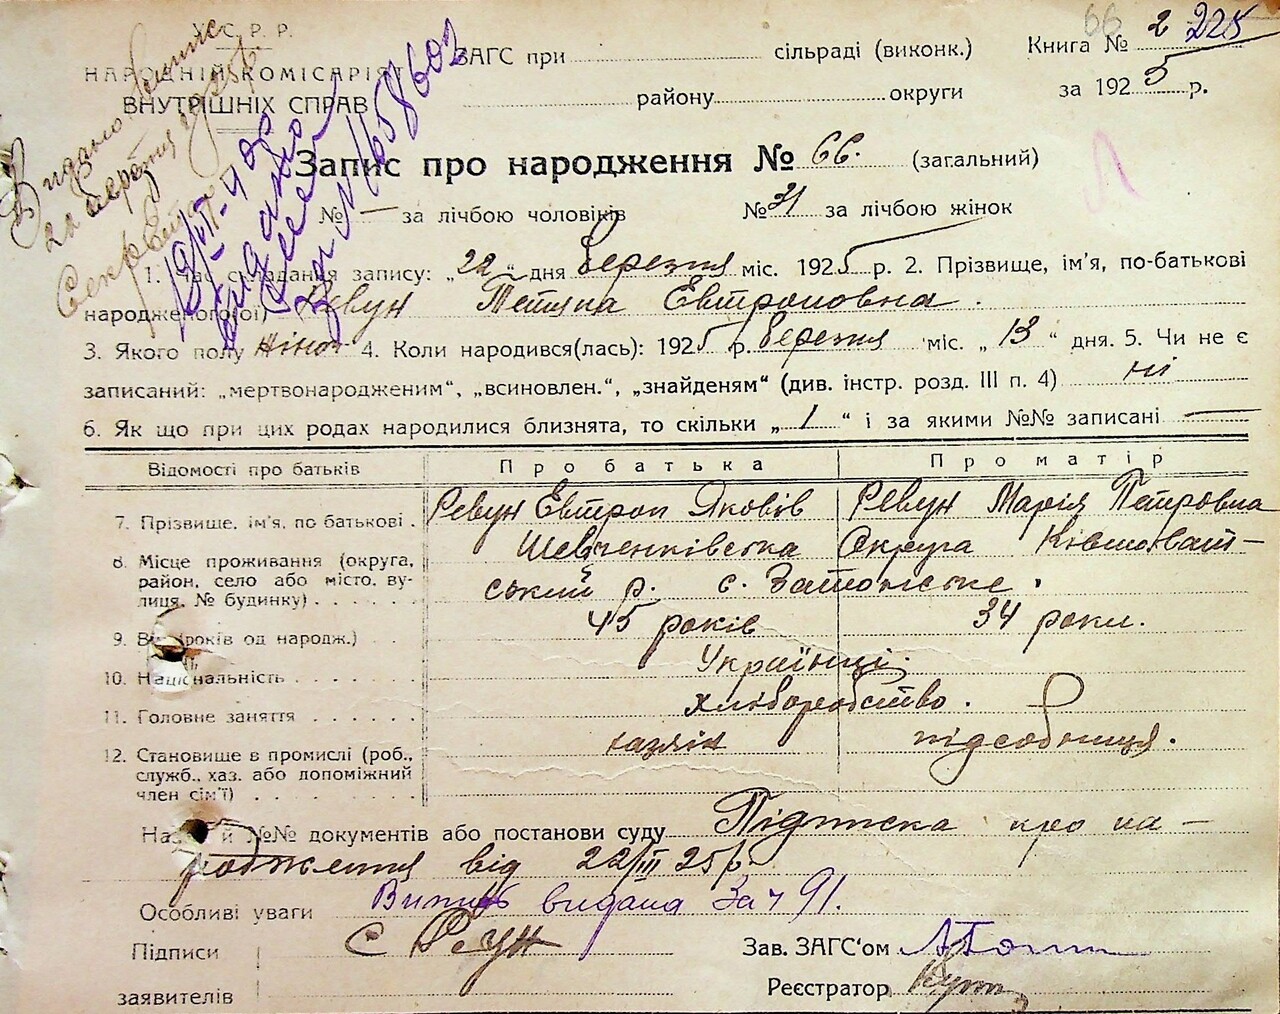 У.С.Р.Р.
НАРОДНІЙ КОМІСАРІЯТ
ВНУТРІШНІХ СПРАВ
ЗАГС при сільраді (виконк.)
району округи
66
Книга № 2 225
за 1925 р.
Видано витяг
22 березня 1925р.
19/VII-40р
видано
№ 1658602
Запис про народження № 66. (загальний)
№ — за лічбою чоловіків № 31 за лічбою жінок
1. Час складання запису: „22“ дня березня міс. 1925 р. 2. Прізвище, ім'я, по-батькові
народженого(ої) Ревун Тетяна Евтроповна.
3. Якого полу жіноч 4. Коли народився(лась): 1925 р. березня міс. „13“ дня. 5. Чи не є
записаний: „мертвонародженим“, „всиновлен.“, „знайденям“ (див. інстр. розд. III п. 4) ні
6. Як що при цих родах народилися близнята, то скільки „1“ і за якими №№ записані —
Відомості про батьків Про батька Про матір
7. Прізвище, ім'я, по батькові. Ревун Евтроп Яковів Ревун Марія Петровна
8. Місце проживання (округа, район, село або місто, вулиця, № будинку) Шевченківська Округа Ківшоват-
ський р. с. Затонське.
9. Вік (років од народж.) 45 років 34 роки.
10. Національність Українці.
11. Головне заняття хліборобство.
12. Становище в промислі (роб., служб., хаз. або допоміжний член сім'ї) хазяїн підсобниця.
Назва й №№ документів або постанови суду Підписка про на-
родження від 22/III 25р.
Особливі уваги Витяг видана За ч 91.
Підписи С Ревун Зав. ЗАГС'ом
заявителів Реєстратор